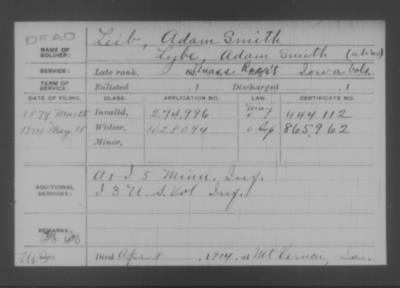 DEAD
NAME OF SOLDIER: Leib, Adam Smith
Lybe, Adam Smith (alias)
SERVICE: Late rank, Iowa Vols.
TERM OF SERVICE: Enlisted , 1 Discharged , 1
DATE OF FILING. CLASS. APPLICATION NO. LAW. CERTIFICATE NO.
1879 Invalid, 274,996 444 112
1914 May, 18 Widow, 1028094 865,962
Minor,
ADDITIONAL SERVICES: A & I 5 Minn, Inf.
I 3 U.S. Vol Inf.
REMARKS:
Died April 1914, at Mt Vernon, Ia.